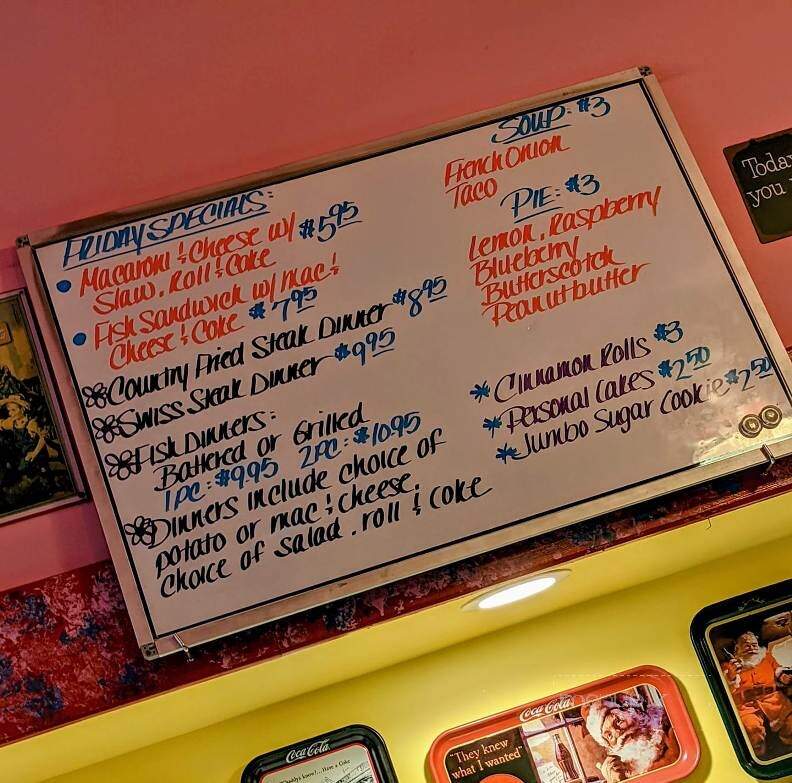 FRIDAY SPECIALS:
• Macaroni & Cheese w/ $5.95
Slaw, Roll & Coke
• Fish Sandwich w/ mac &
Cheese & Coke $7.95
Country Fried Steak Dinner $8.95
Swiss Steak Dinner $9.95
Fish Dinners:
Battered or Grilled
1 PC: $9.95 2 PC: $10.95
Dinners include choice of
potato or mac & cheese,
choice of salad, roll & coke
SOUP: $3
French Onion
Taco
PIE: $3
Lemon, Raspberry
Blueberry
Butterscotch
Peanutbutter
* Cinnamon Rolls $3
* Personal Cakes $2.50
* Jumbo Sugar Cookie $2.50
Today
you
Coca-Cola
Have a Coke
Coca-Cola
"They knew
what I wanted"